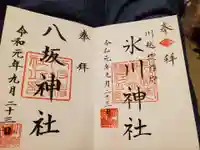 奉拝
川越
氷川神社
令和元年九月二十三日
奉拝
八坂神社
令和元年九月二十三日